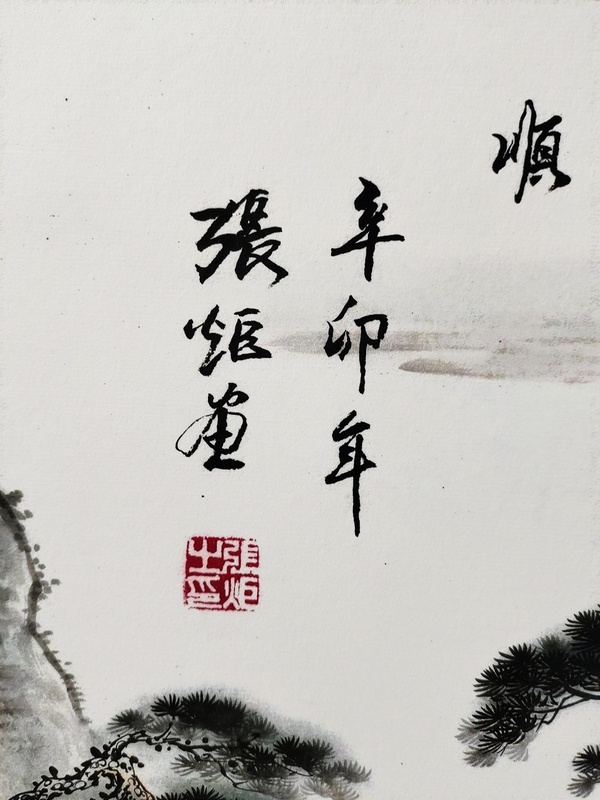 順
辛卯年
張炬画
張炬之印